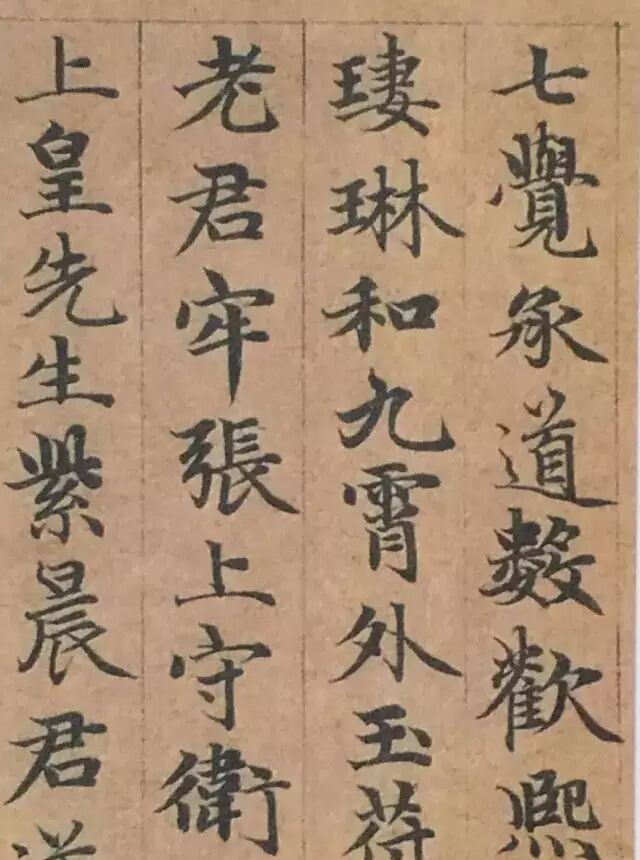 七覺承道數歡熙
琳和九霄外玉
老君牢張上守衛
上皇先生紫晨君道